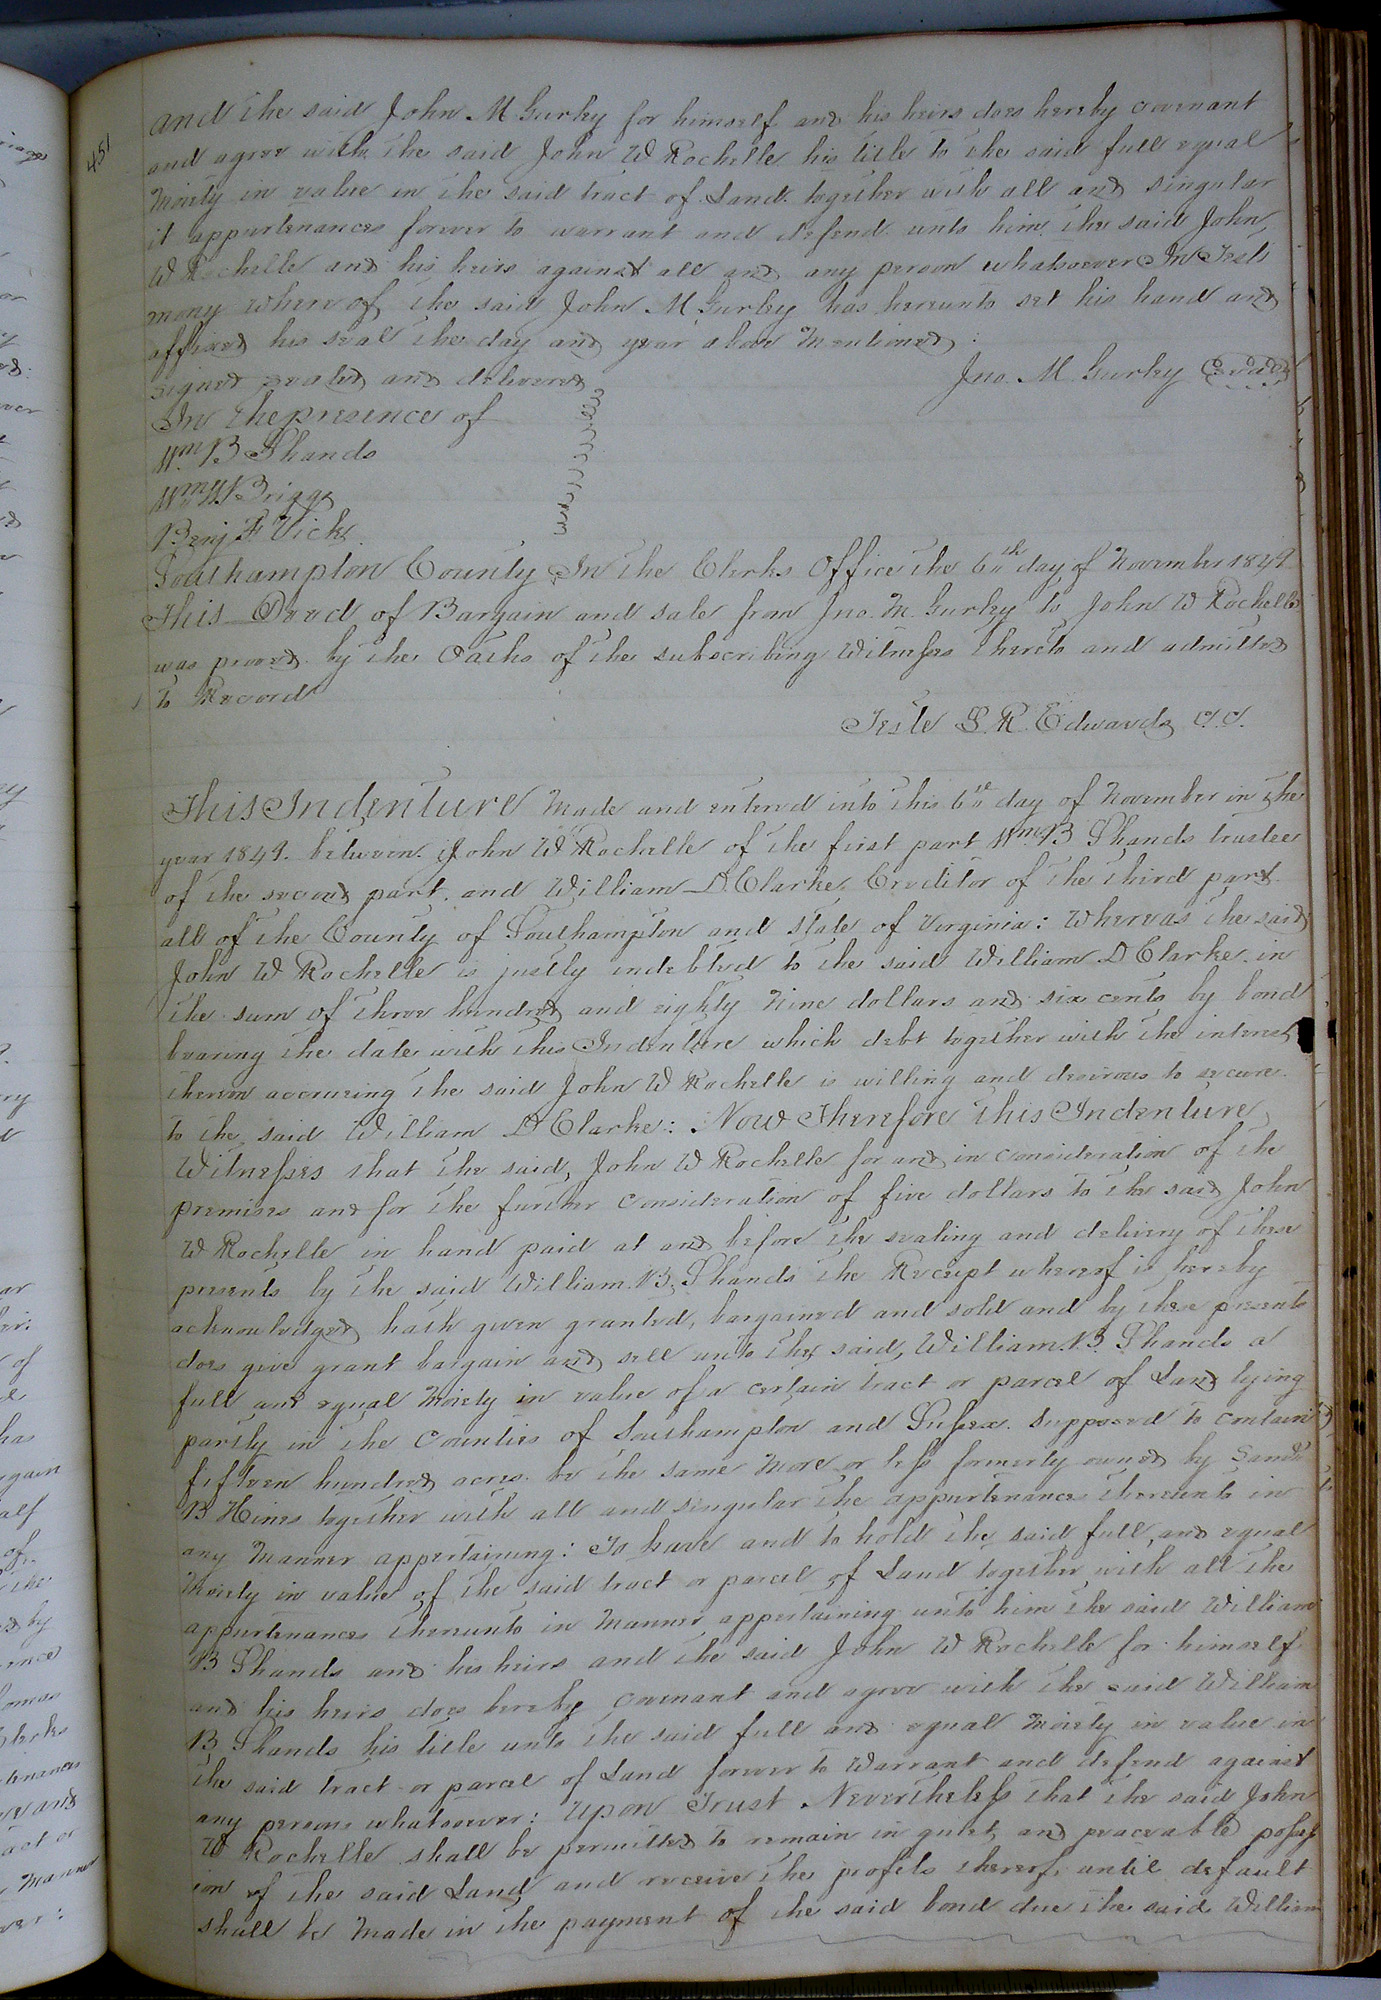 451
and the said John M Gurley for himself and his heirs does hereby covenant
and agree with the said John W Rochelle his title to the said full equal
Moiety in value in the said tract of Land together with all and singular
it appurtenances forever to warrant and defend unto him the said John
W Rochelle and his heirs against all and any person whatsoever In Testi
mony where of the said John M Gurley has hereunto set his hand and
affixed his seal the day and year above Mentioned:
signed sealed and delivered
Jno. M Gurley Seal
In the presence of
Wm B Shands
Wm Briggs
Benj F Vick
Southampton County In the Clerks Office the 6th day of November 1849
This Deed of Bargain and sale from Jno. M. Gurley to John W Rochelle
was proved by the Oaths of the subscribing Witnesses thereto and admitted
to Record
Teste L. R. Edwards C.C.
This Indenture Made and entered into this 6th day of November in the
year 1849. between John W Rochelle of the first part Wm B Shands trustee
of the second part. and William D Clarke Creditor of the third part
all of the County of Southampton and state of Virginia: Whereas the said
John W Rochelle is justly indebted to the said William D Clarke in
the sum of three hundred and eighty Nine dollars and six cents by bond
bearing the date with this Indenture which debt together with the interest
thereon accrueing the said John W Rochelle is willing and desirous to secure
to the said William D Clarke: Now Therefore this Indenture
Witnesses that the said John W Rochelle for and in consideration of the
premises and for the further consideration of five dollars to the said John
W Rochelle in hand paid at and before the sealing and delivery of these
presents by the said William B Shands the Receipt whereof is hereby
acknowledged hath given granted, bargained and sold and by these presents
does give grant bargain and sell unto the said William B Shands a
full and equal Moiety in value of a certain tract or parcel of Land lying
partly in the Counties of Southampton and Sussex. Supposed to contain
fifteen hundred acres. be the same More or less formerly owned by
B Hines together with all and singular the appurtenances thereunto in
any Manner appertaining: To have and to hold the said full and equal
Moiety in value of the said tract or parcel of Land together with all the
appurtenances thereunto in Manner appertaining unto him the said William
B Shands and his heirs and the said John W Rochelle for himself
and his heirs does hereby covenant and agree with the said William
B Shands his title unto the said full and equal Moiety in value in
the said tract or parcel of Land forever to Warrant and defend against
any persons whatsoever: Upon Trust Nevertheless that the said John
W Rochelle shall be permitted to remain in quiet and peaceable possess
ion of the said Land and receive the profits thereof. until default
shall be Made in the payment of the said bond due the said William